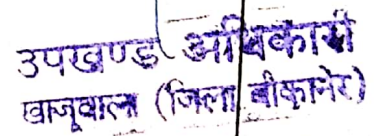 उपखण्ड अधिकारी
खाजूवाला (जिला बीकानेर)